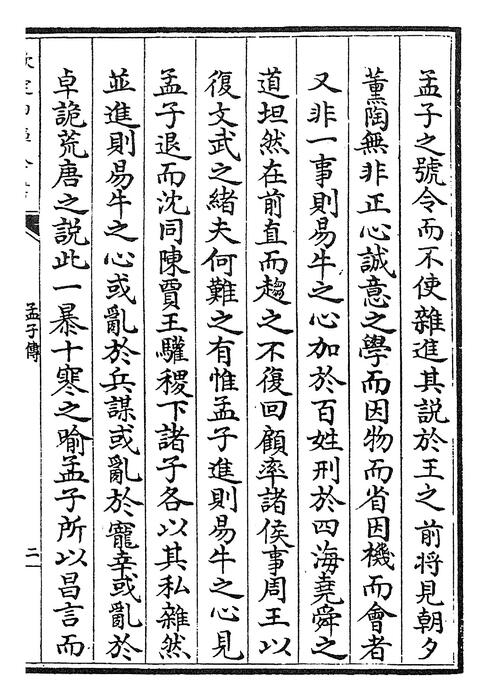 孟子之號令而不使雜進其説於王之前將見朝夕
薫陶無非正心誠意之學而因物而省因機而會者
又非一事則易牛之心加於百姓刑於四海堯舜之
道坦然在前直而趨之不復回顧率諸侯事周王以
復文武之緒夫何難之有惟孟子進則易牛之心見
孟子退而沈同陳賈王驩稷下諸子各以其私雜然
並進則易牛之心或亂於兵謀或亂於寵幸或亂於
卓詭荒唐之説此一暴十寒之喻孟子所以昌言而
孟子傳
二